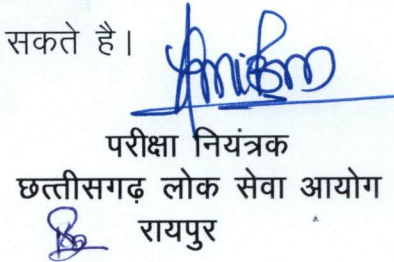 सकते है।
परीक्षा नियंत्रक
छत्तीसगढ़ लोक सेवा आयोग
रायपुर